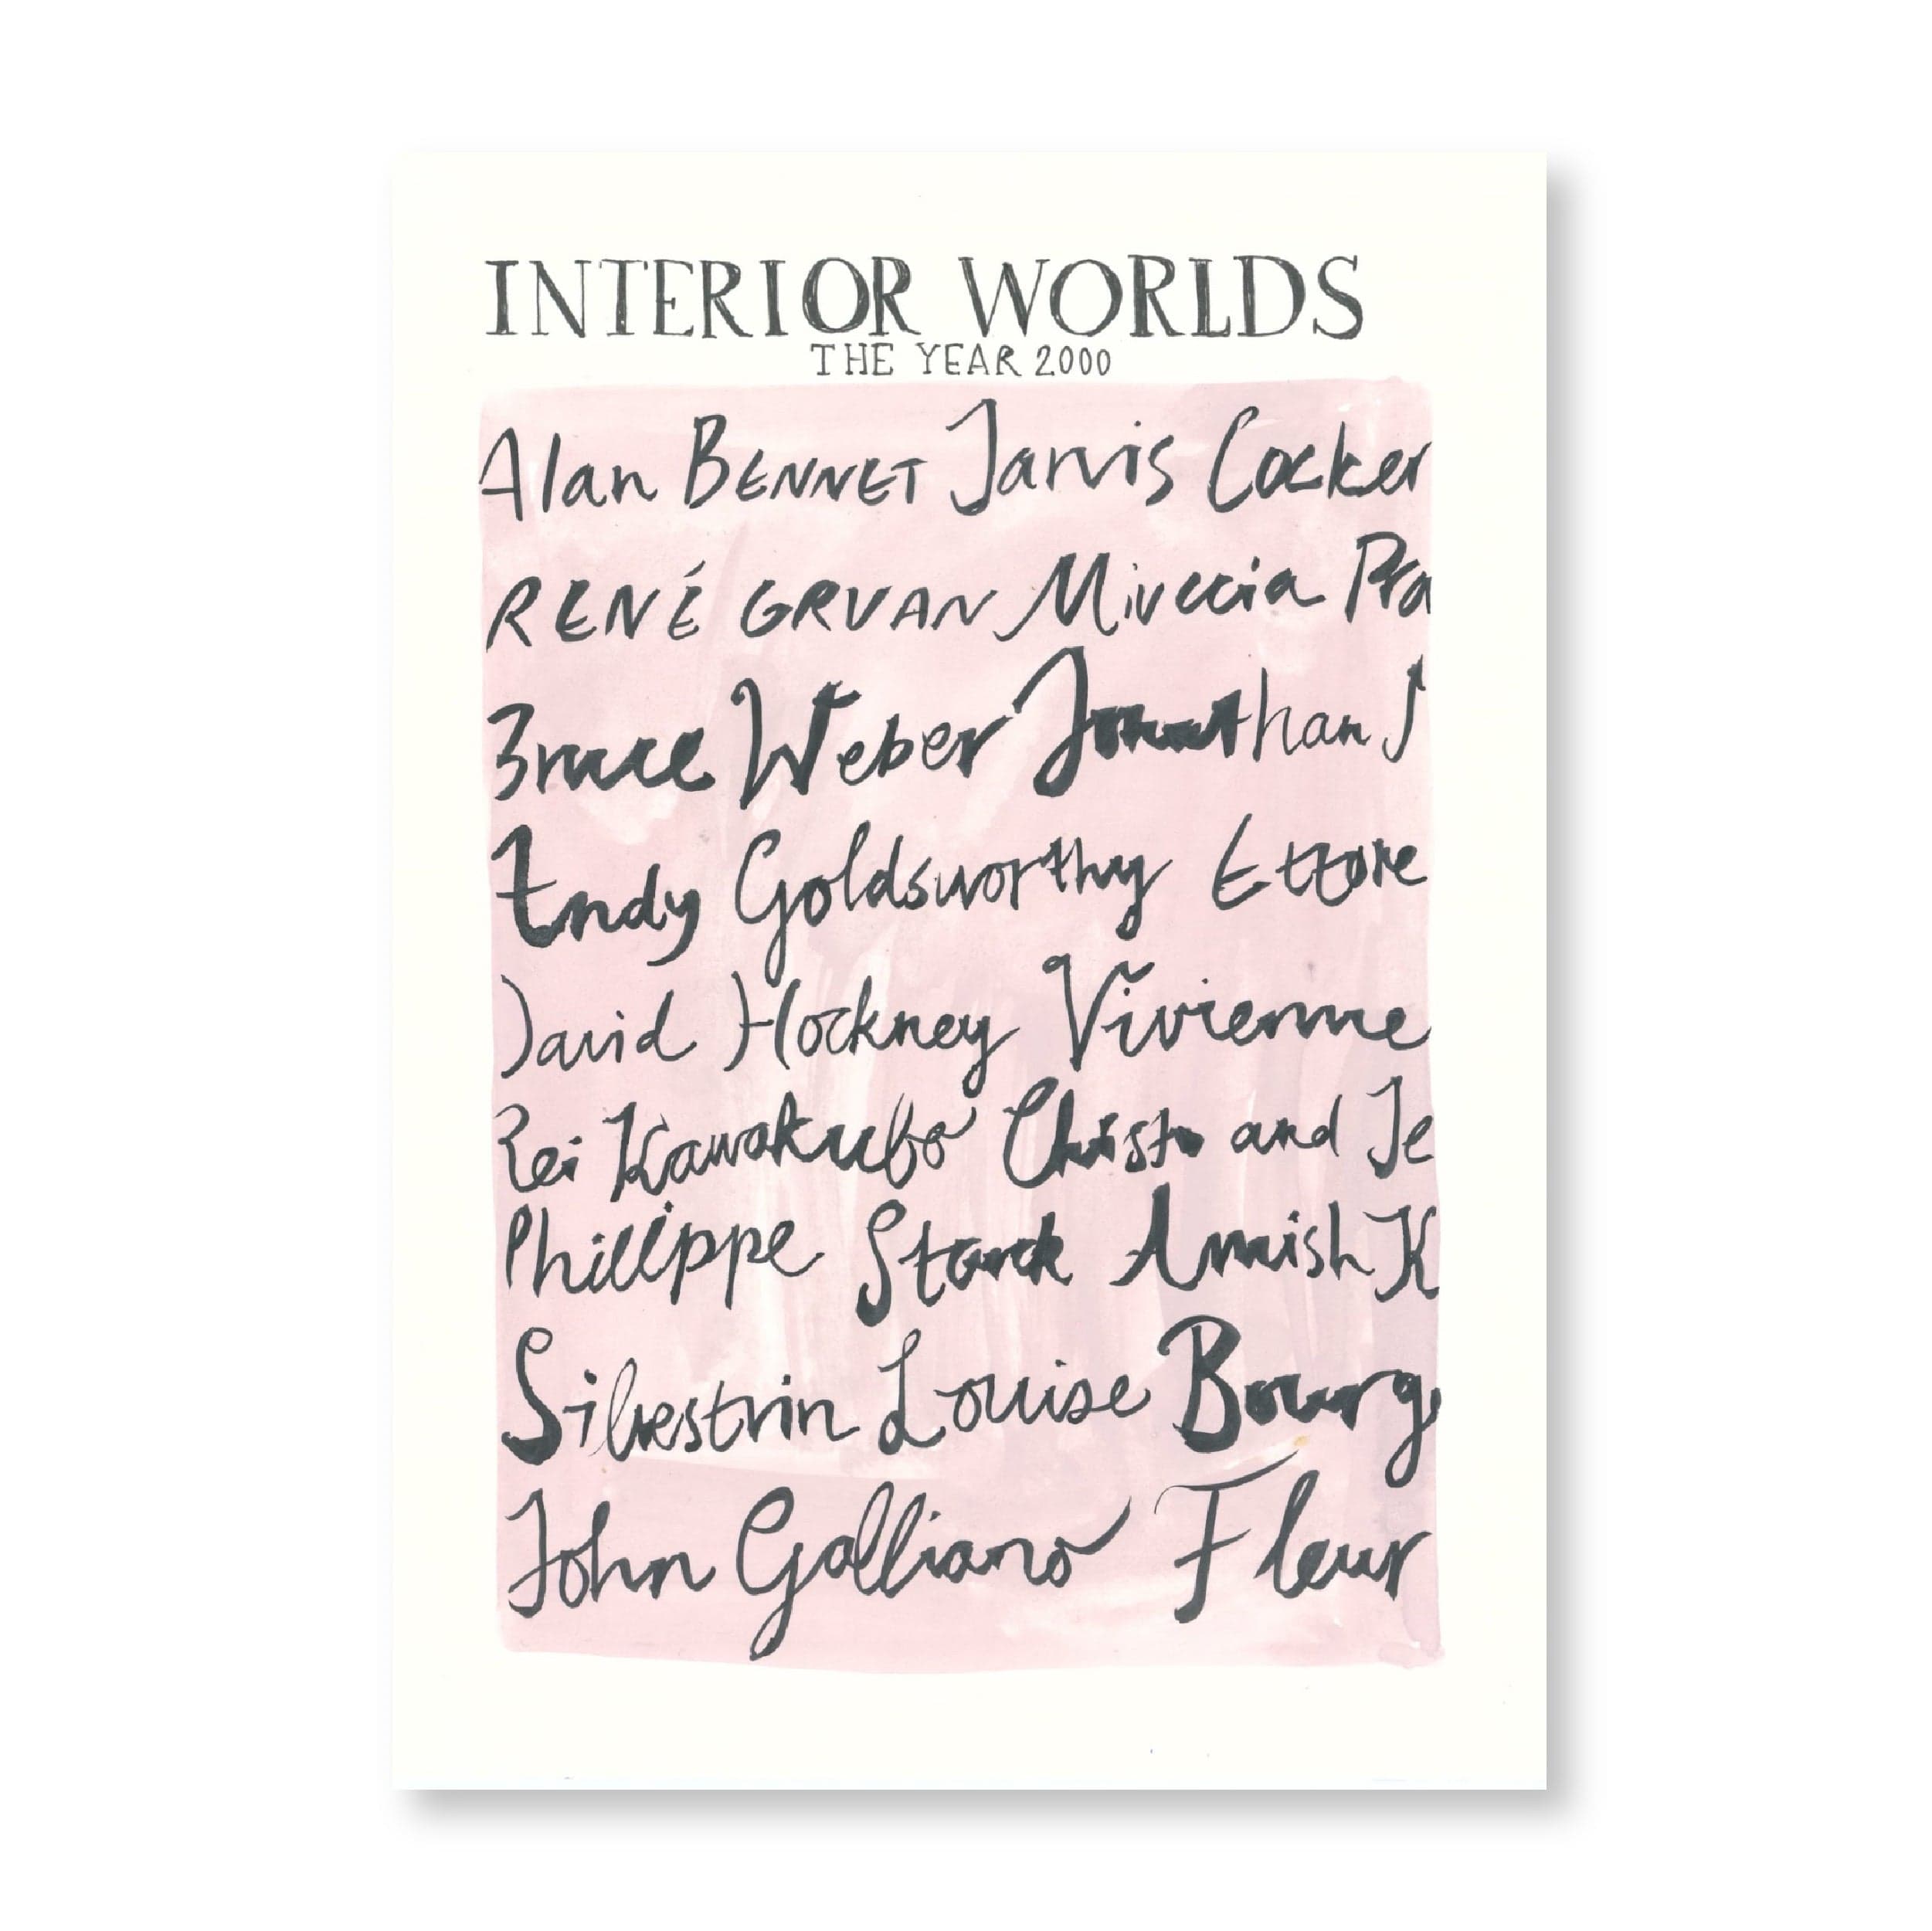 INTERIOR WORLDS
THE YEAR 2000
Alan BENNET Jarvis Cocker
RENÉ GRUAN Miuccia Pra
Bruce Weber Jonathan J
Andy Goldsworthy Ettore
David Hockney Vivienne
Rei Kawakubo Christo and Je
Phillippe Starck Annish K
Silvestrin Louise Bourge
John Galliano Fleur